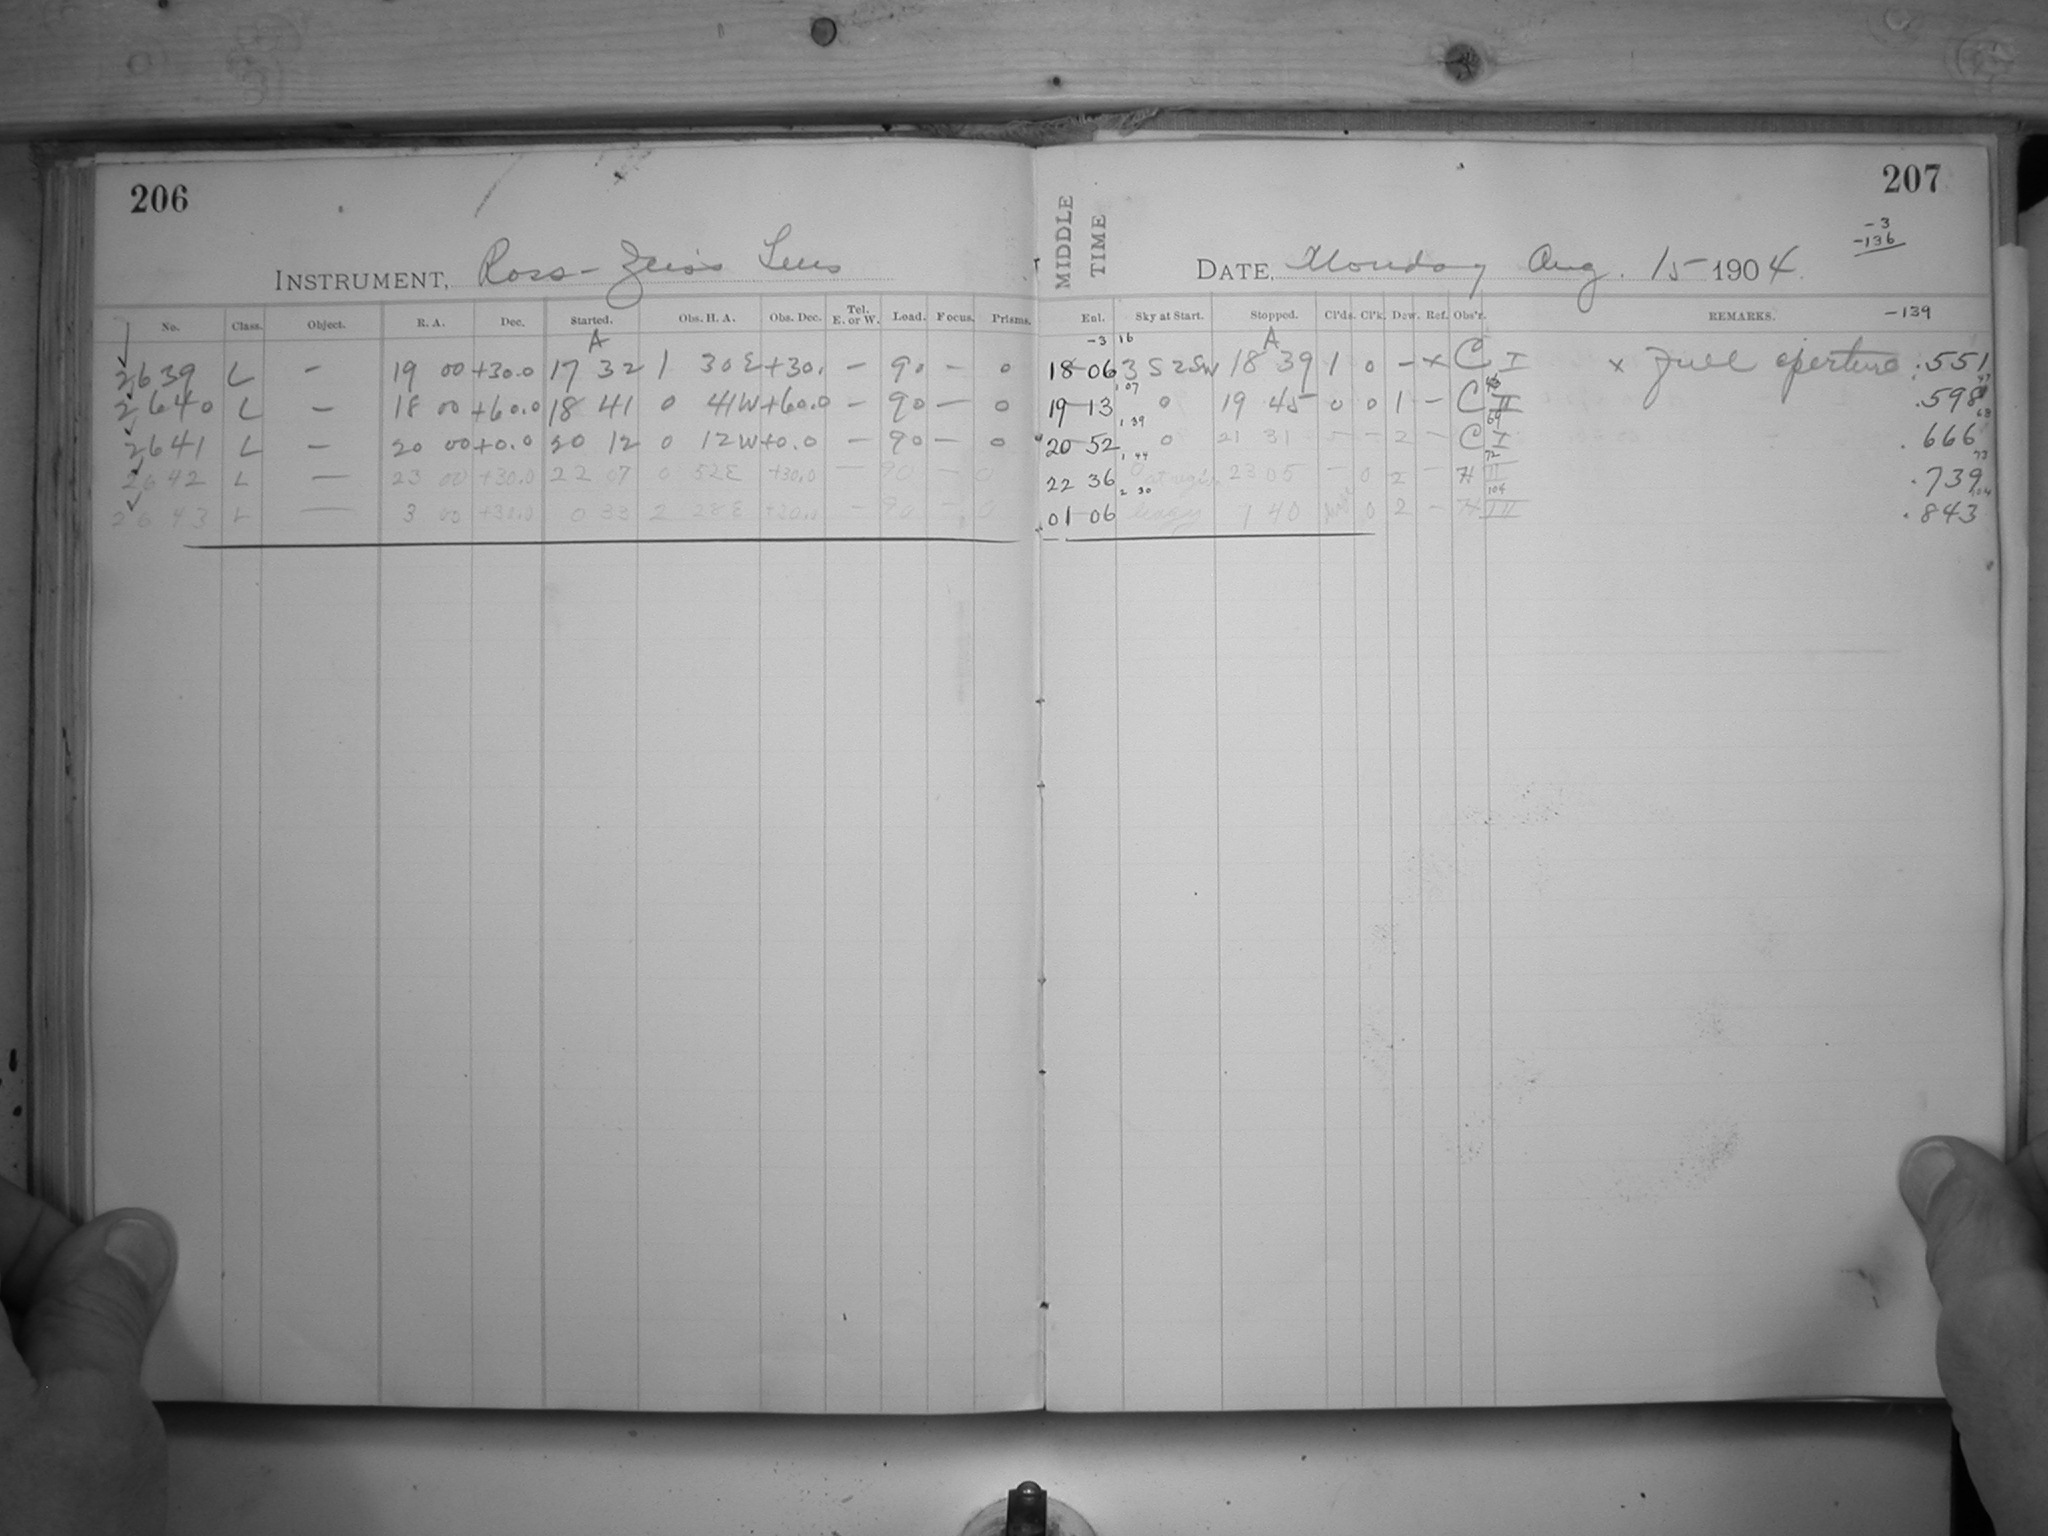 206
INSTRUMENT, Ross-Zeiss Lens
No. Class. Object. R. A. Dec. Started. Obs. H. A. Obs. Dec. Tel. E. or W. Load. Focus. Prisms.
A
2639 L — 19 00 +30.0 17 32 1 30E +30. — 90 — 0
2640 L — 18 00 +60.0 18 41 0 41W +60.0 — 90 — 0
2641 L — 20 00 +0.0 20 12 0 12W +0.0 — 90 — 0
2642 L — 23 00 +30.0 22 07 0 52E +30.0 — 90 — 0
2643 L — 3 00 +30.0 0 33 2 28E +30.0 — 90 — 0
207
MIDDLE TIME
-3
-136
DATE, Monday Aug. 15 1904.
Enl. Sky at Start. Stopped. Cl'ds. Cl'k. Dew. Ref. Obs'r. REMARKS. -139
-3 16 A
18 06 3 S 2 SW 18 39 1 0 — x C I x Full aperture .551
1 07
19 13 0 19 45 0 0 1 — C II .598
1 39 69 68
20 52 0 21 31 — — 2 — C I .666
1 44 72 73
22 36 0 23 05 — 0 2 — H II .739
2 30 104 104
01 06 1 40 0 2 — H III .843